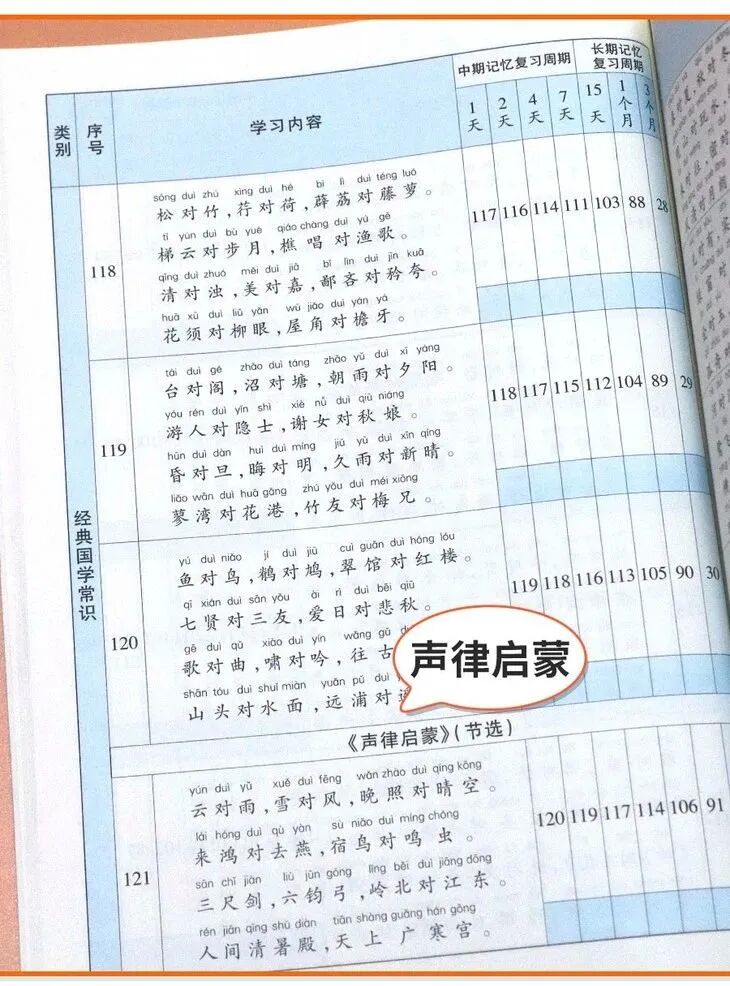 类别 序号 学习内容 中期记忆复习周期 长期记忆复习周期
1天 2天 4天 7天 15天 1个月 3个月
经典国学常识
118
sōng duì zhú xìng duì hé bì lì duì téng luó
松对竹，荇对荷，薜荔对藤萝。
tī yún duì bù yuè qiáo chàng duì yú gē
梯云对步月，樵唱对渔歌。
qīng duì zhuó měi duì jiā bǐ lìn duì jīn kuā
清对浊，美对嘉，鄙吝对矜夸。
huā xū duì liǔ yǎn wū jiǎo duì yán yá
花须对柳眼，屋角对檐牙。
117 116 114 111 103 88 28
119
tái duì gé zhǎo duì táng zhāo yǔ duì xī yáng
台对阁，沼对塘，朝雨对夕阳。
yóu rén duì yǐn shì xiè nǚ duì qiū niáng
游人对隐士，谢女对秋娘。
hūn duì dàn huì duì míng jiǔ yǔ duì xīn qíng
昏对旦，晦对明，久雨对新晴。
liǎo wān duì huā gǎng zhú yǒu duì méi xiōng
蓼湾对花港，竹友对梅兄。
118 117 115 112 104 89 29
120
yú duì niǎo jí duì jiū cuì guǎn duì hóng lóu
鱼对鸟，鹡对鸠，翠馆对红楼。
qī xián duì sān yǒu ài rì duì bēi qiū
七贤对三友，爱日对悲秋。
gē duì qǔ xiào duì yín wǎng gǔ
歌对曲，啸对吟，往古
shān tóu duì shuǐ miàn yuǎn pǔ duì
山头对水面，远浦对
119 118 116 113 105 90 30
声律启蒙
《声律启蒙》（节选）
121
yún duì yǔ xuě duì fēng wǎn zhào duì qíng kōng
云对雨，雪对风，晚照对晴空。
lái hóng duì qù yàn sù niǎo duì míng chóng
来鸿对去燕，宿鸟对鸣虫。
sān chǐ jiàn liù jūn gōng lǐng běi duì jiāng dōng
三尺剑，六钧弓，岭北对江东。
rén jiān qīng shǔ diàn tiān shàng guǎng hán gōng
人间清暑殿，天上广寒宫。
120 119 117 114 106 91